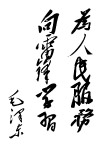 为人民服务
向雷锋学习
毛泽东